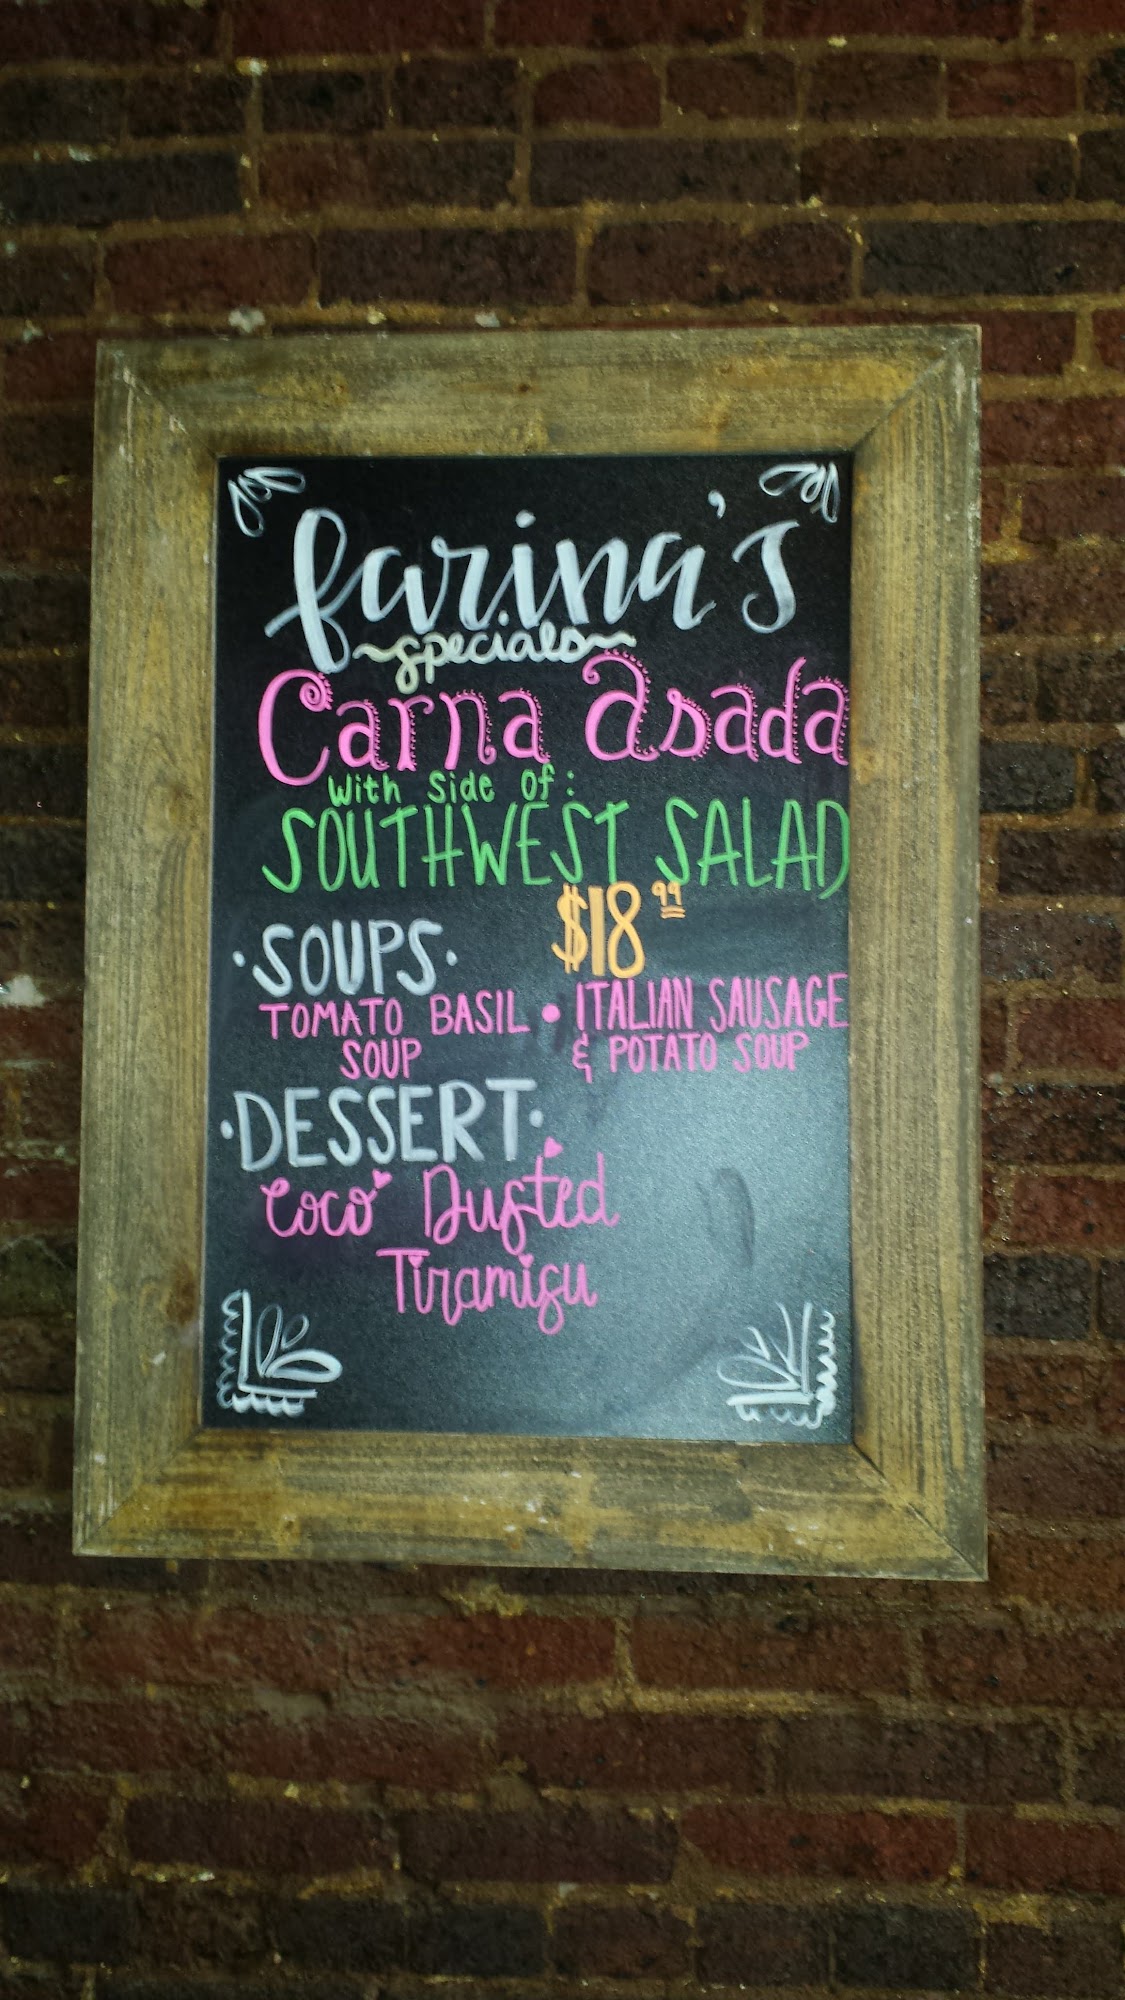 farina's
~specials~
Carna Asada
With Side Of:
SOUTHWEST SALAD
$18.99
·SOUPS·
TOMATO BASIL • ITALIAN SAUSAGE
SOUP & POTATO SOUP
·DESSERT·
Coco Dusted
Tiramisu